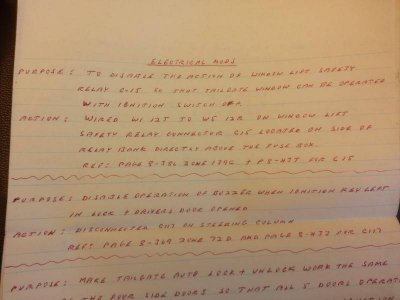 ELECTRICAL MODS
PURPOSE: TO DISABLE THE ACTION OF WINDOW LIFT SAFETY
RELAY G15 SO THAT TAILGATE WINDOW CAN BE OPERATED
WITH IGNITION SWITCH OFF.
ACTION: WIRED W1 12T TO W5 12R ON WINDOW LIFT
SAFETY RELAY CONNECTOR G15 LOCATED ON SIDE OF
RELAY BANK DIRECTLY ABOVE THE FUSE BOX.
REF: PAGE 8-386 ZONE 1396 + P8-437 FOR G15
PURPOSE: DISABLE OPERATION OF BUZZER WHEN IGNITION KEY LEFT
IN LOCK + DRIVERS DOOR OPENED
ACTION: DISCONNECTED ON STEERING COLUMN
REF: PAGE 8-369 ZONE 72D AND PAGE 8-433 FOR
PURPOSE: MAKE TAILGATE AUTO LOCK + UNLOCK WORK THE SAME
AS THE FOUR SIDE DOORS SO THAT ALL 5 DOORS OPERATE